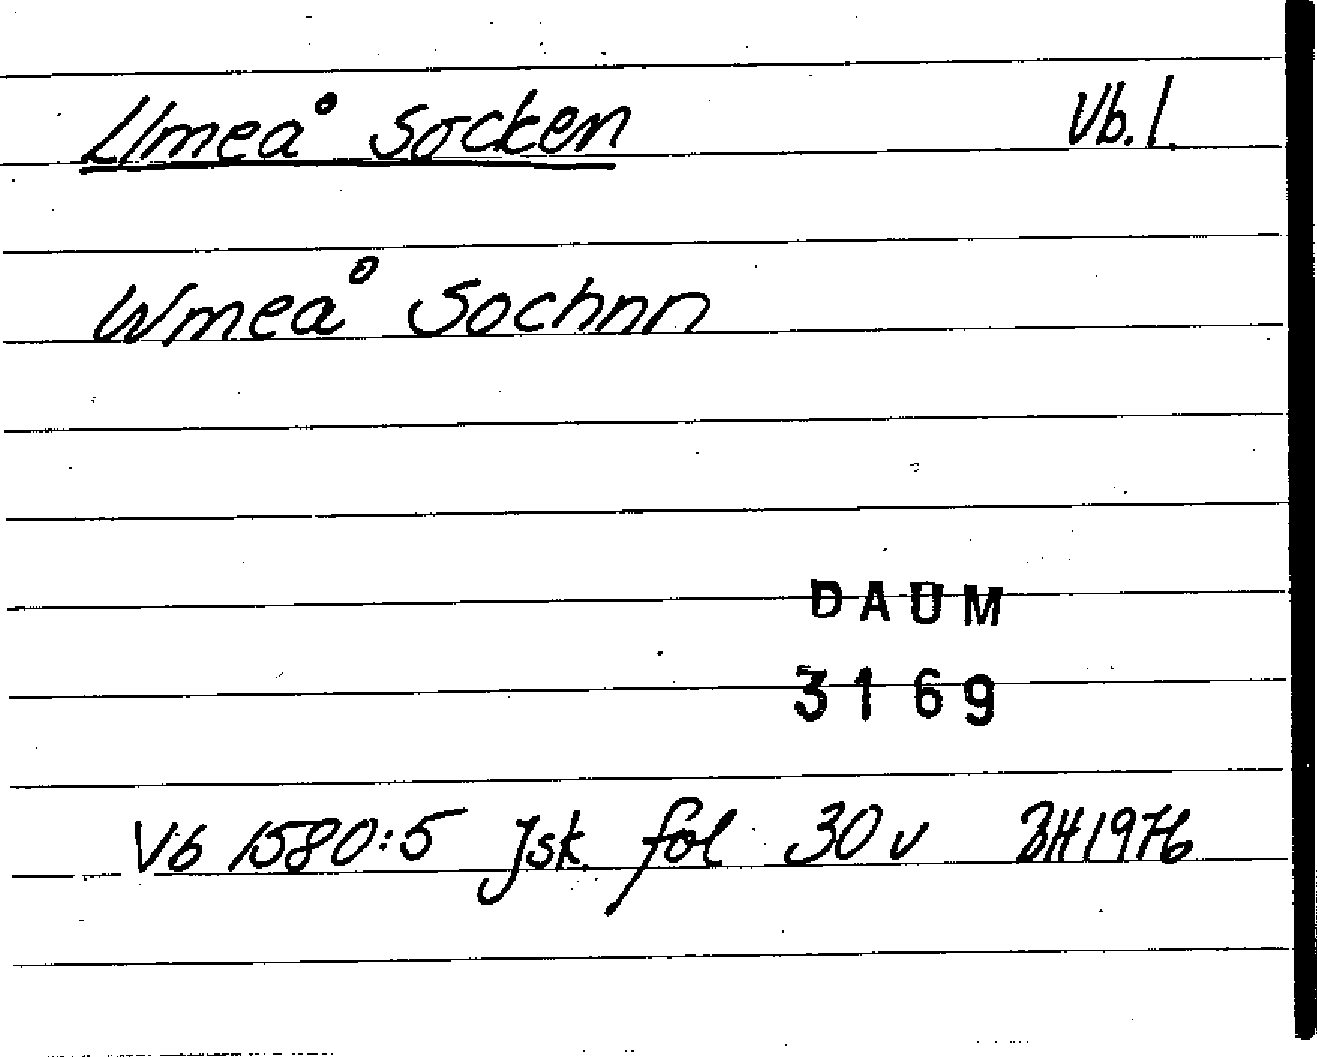 Umeå socken Vb. l.
Wmeå Sochnn
DAUM
3169
Vb 1580:5 Jsk. fol 30 v BH 1976